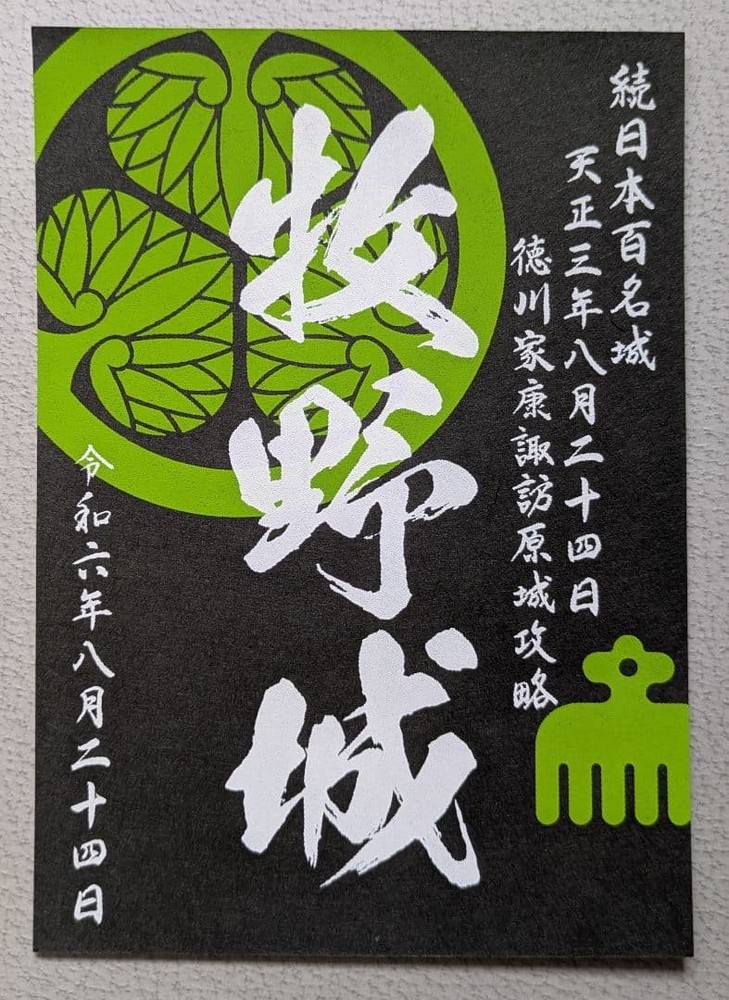 続日本百名城
天正三年八月二十四日
徳川家康諏訪原城攻略
牧野城
令和六年八月二十四日